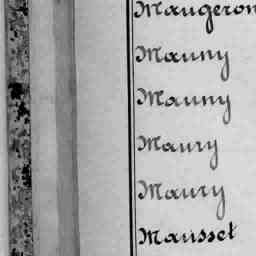 Maugeron
Mauny
Mauny
Maury
Maury
Mausset